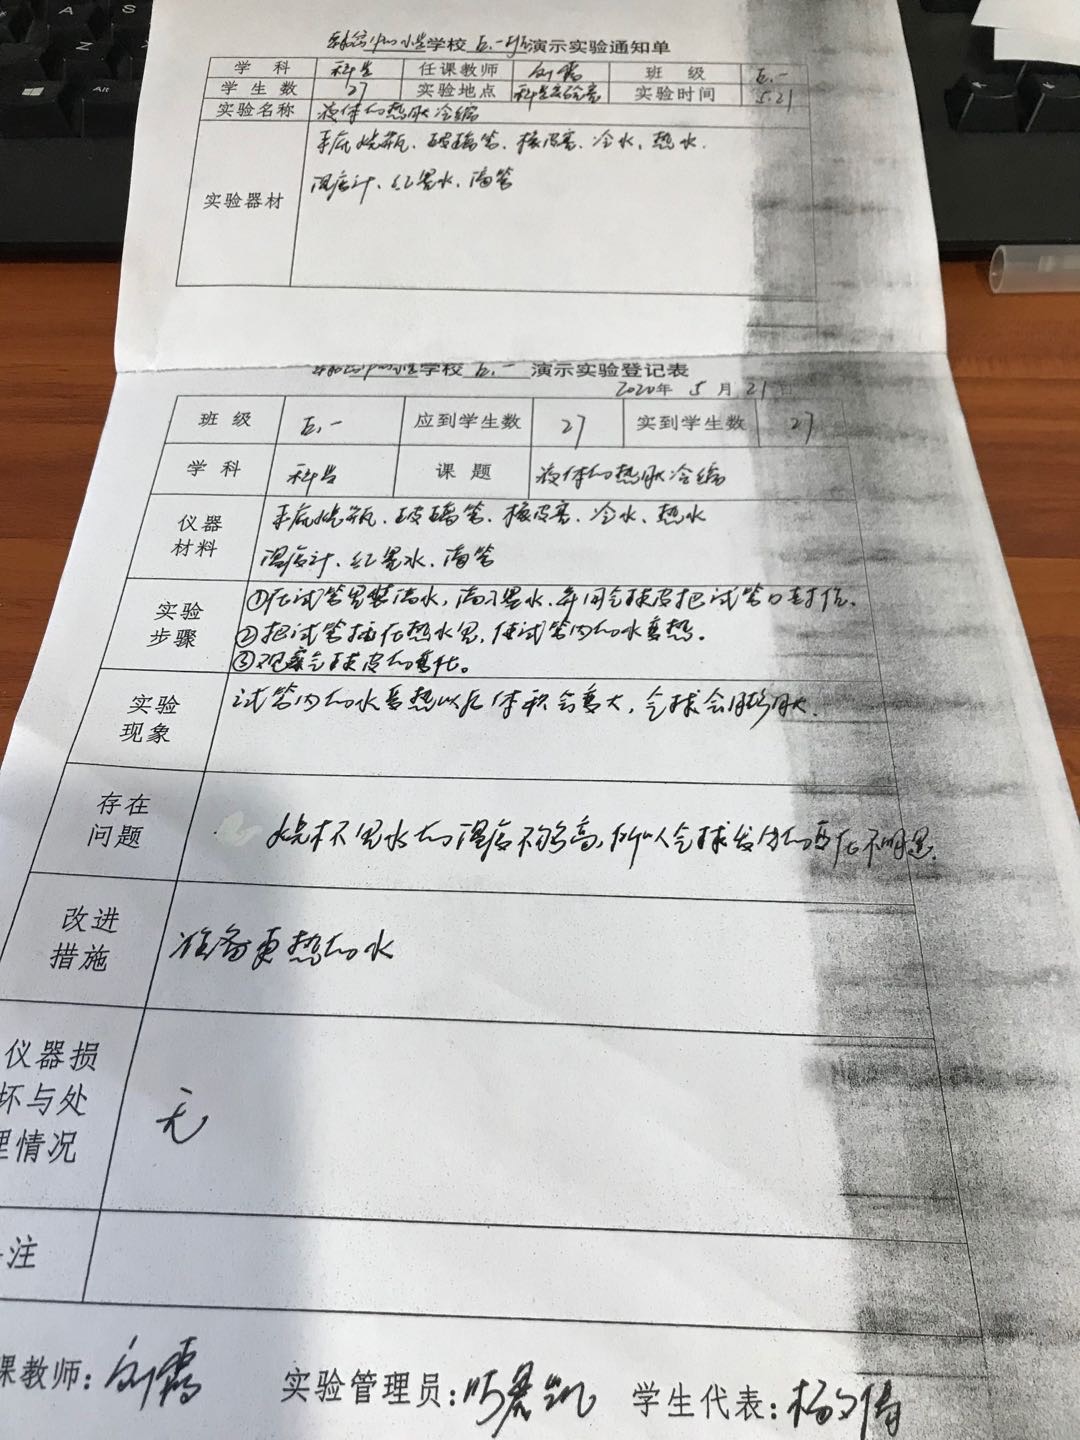 学校 五.一班演示实验通知单
学科 科学 任课教师 刘霞 班级 五.一
学生数 27 实验地点 科学实验室 实验时间 5.21
实验名称 液体的热胀冷缩
平底烧瓶、玻璃管、橡皮塞、冷水、热水.
实验器材 温度计、红墨水、滴管
学校 五.一 演示实验登记表
2020年 5月21日
班级 五.一 应到学生数 27 实到学生数 27
学科 科学 课题 液体的热胀冷缩
仪器材料 平底烧瓶、玻璃管、橡皮塞、冷水、热水
温度计、红墨水、滴管
①在试管里装满水，滴入墨水，并用气球皮把试管口封住.
实验步骤 ②把试管插在热水里，使试管内的水受热。
③观察气球皮的变化。
实验现象 试管内的水受热以后体积会变大，气球会膨胀.
存在问题 烧杯里水的温度不够高，所以气球发生的变化不明显.
改进措施 准备更热的水
仪器损
坏与处 无
理情况
注
课教师：刘霞 实验管理员： 学生代表：杨文倩